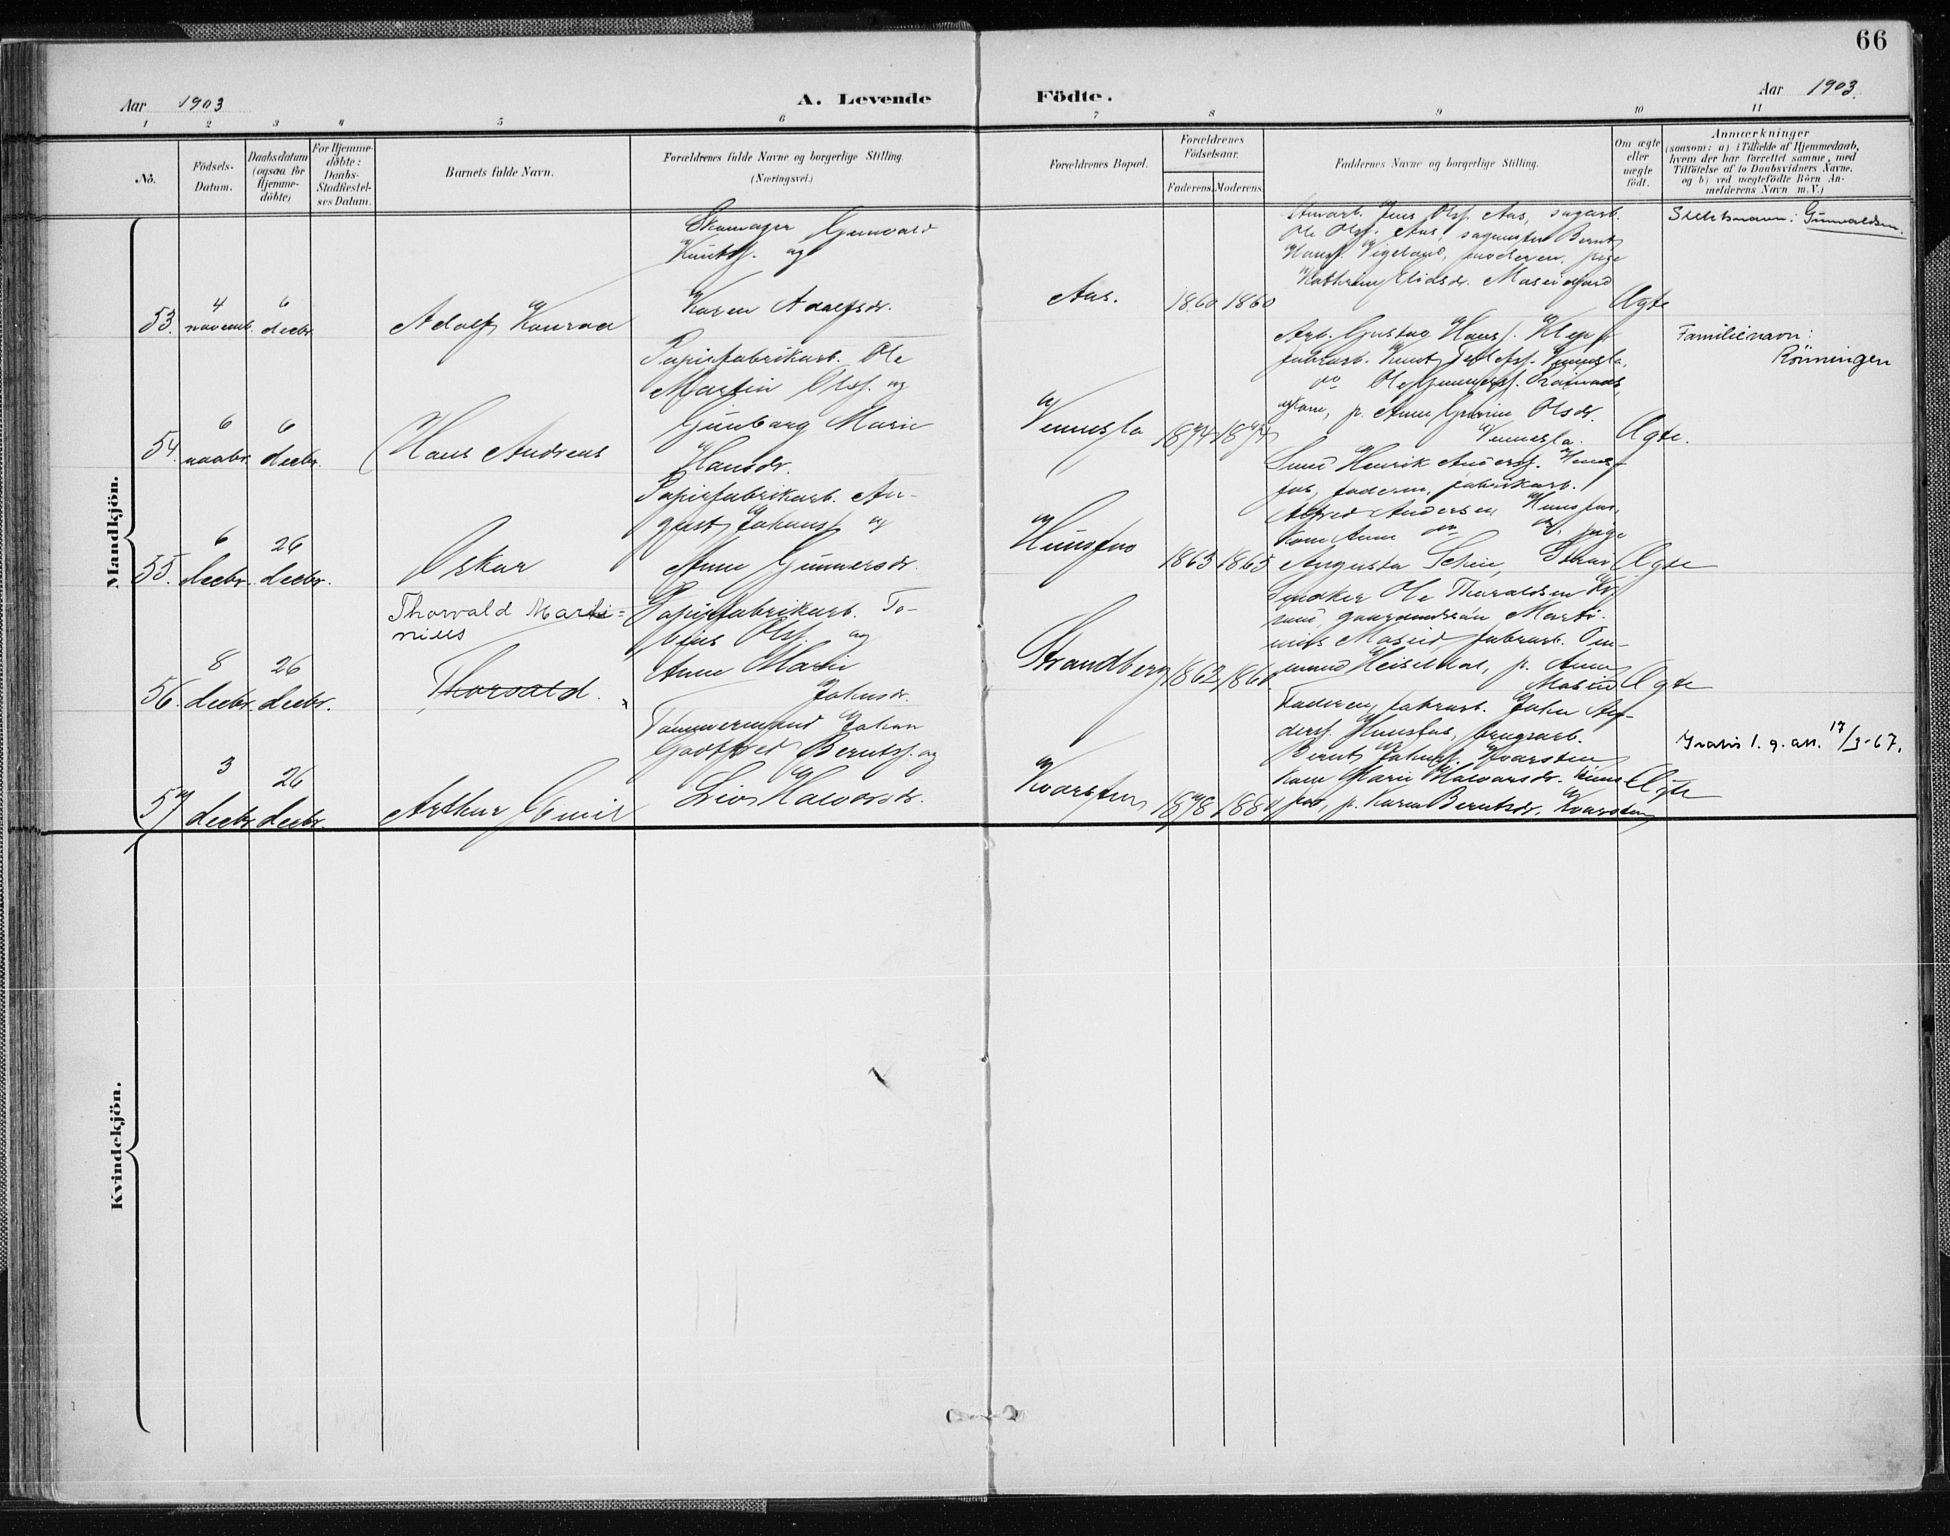 66
Aar 1903
A. Levende
Födte.
Aar 1903.
1 2 3 4 5 6 7 8 9 10 11
No.
Födsels-
Datum.
Daabsdatum
(ogsaa for
Hjemme-
döbte)
For Hjemme-
döbte:
Daabs-
Stadfæstel-
ses Datum.
Barnets fulde Navn.
Forældrenes fulde Navne og borgerlige Stilling.
(Næringsvei.)
Forældrenes Bopæl.
Forældrenes
Födselsaar.
Faderens.
Moderens.
Faddernes Navne og borgerlige Stilling.
Om ægte
eller
uægte
födt.
Anmærkninger
(saasom: a) i Tilfælde af Hjemmedaab,
hvem der har forrettet samme, med
Tilföielse af to Daabsvidners Navne,
og b) ved uægtefödte Börn An-
melderens Navn m. V.)
Mandkjön.
53.
4
novemb.
6
decbr.
Adolf Konrad
Skomager Gunvald
Knuts. og
Karen Adolfsdr.
Aas.
1860
1860
Jens Ols. Aas, sagarb.
Ole Ols. Aas, sagmester Bernt
Hans. Vigeland, moderen, pige
Kathrine
Ægte
Slektsnavn: Gunvaldsen.
54.
6
novbr.
6
decbr.
Hans Andreas
Papirfabrikarb. Ole
Martin Ols. og
Gunborg Marie
Hansdr.
Vennesla
1874
1874
Arb. Gustav Hans.
fabrarb. Knut Vennesla,
do Ole
kone, p. Anne Olsdr.
Vennesla.
Ægte.
Familienavn:
Rönningen
55.
6
decbr.
26
decbr.
Oskar
Papirfabrikarb. Au-
gust Johans. og
Anne Gunnersdr.
Hunsfos
1863
1865
Smed Henrik Anders. Huns-
fos, faderen, fabrikarb.
Alfred Andersen Hunsfos,
kone Anne do do, pige
Augusta
Ægte
56.
8
decbr.
26
decbr.
Thorvald Marti=
nius
Thorvald.
Papirfabrikarb. To-
bias Ols. og
Anne Marie
Johnsdr.
Strandberg
1862
1860
Snedker Ole Tharaldsen
Marti-
nius Moseid, fabrarb. Om-
mund Heiseldal, p. Anne
Moseid
Ægte
57
3
decbr.
26
decbr.
Arthur Emil
Tømmermand Johan
Godtfred Bernts. og
Liv Halvorsdr.
Kvarsten
1878
1880
Faderen, fabrarb. John An-
ders. Hunsfos, brugsarb.
Bernt Johans. Kvarsten
kone Marie Halvorsdr. Huns-
fos, p. Karen Berntsdr. Kvarsten
Ægte
Gratis l. g. att. 17/3-67.
Kvindekjön.